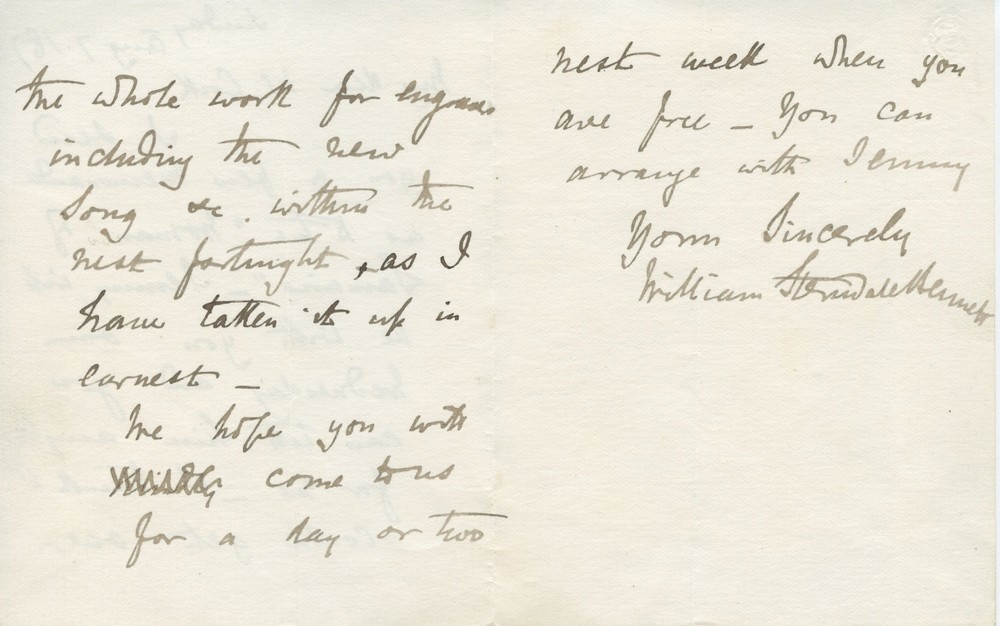 the whole work for engravers
including the new
Song &c. within the
next fortnight, as I
have taken it up in
earnest —
We hope you will
come to us
for a day or two
next week when you
are free — You can
arrange with Jemmy
Yours Sincerely
William Sterndale Bennett